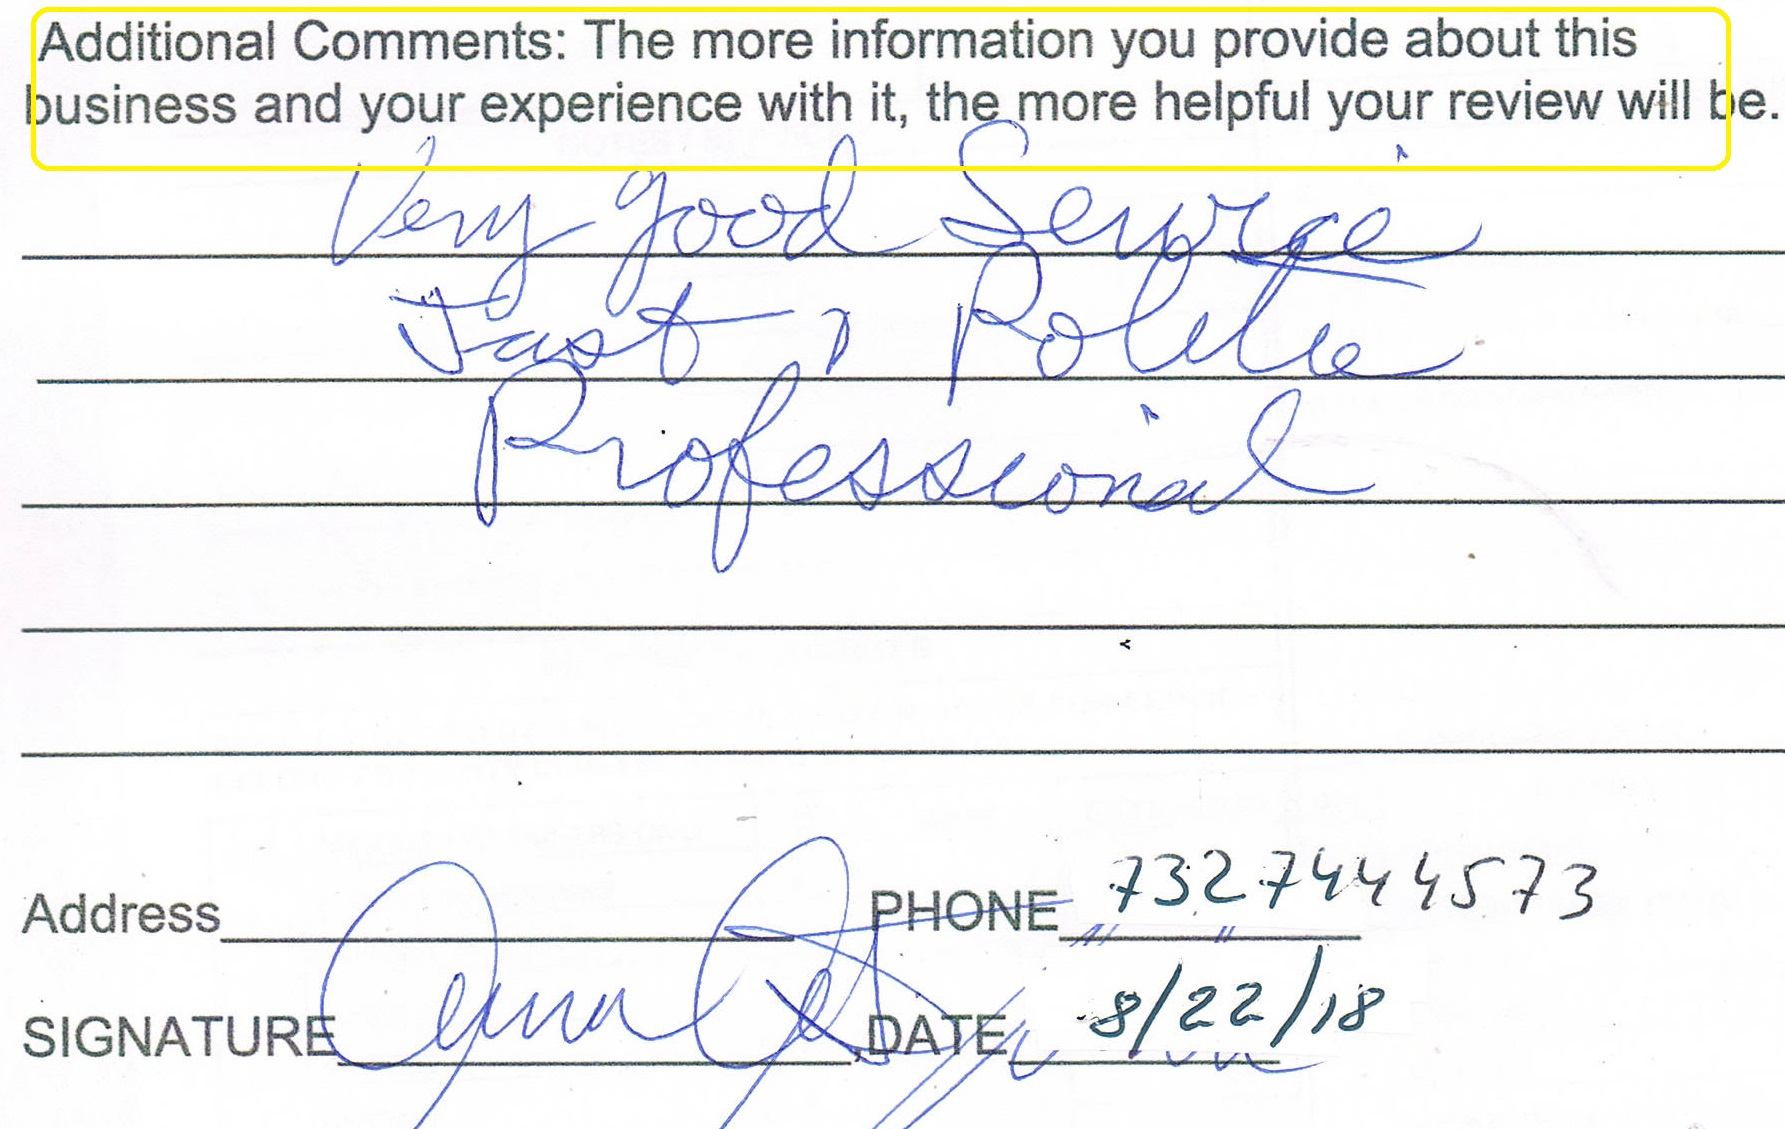 Additional Comments: The more information you provide about this
business and your experience with it, the more helpful your review will be.
Very good Service
Fast & Polite
Professional
Address PHONE 7327444573
SIGNATURE DATE 8/22/18